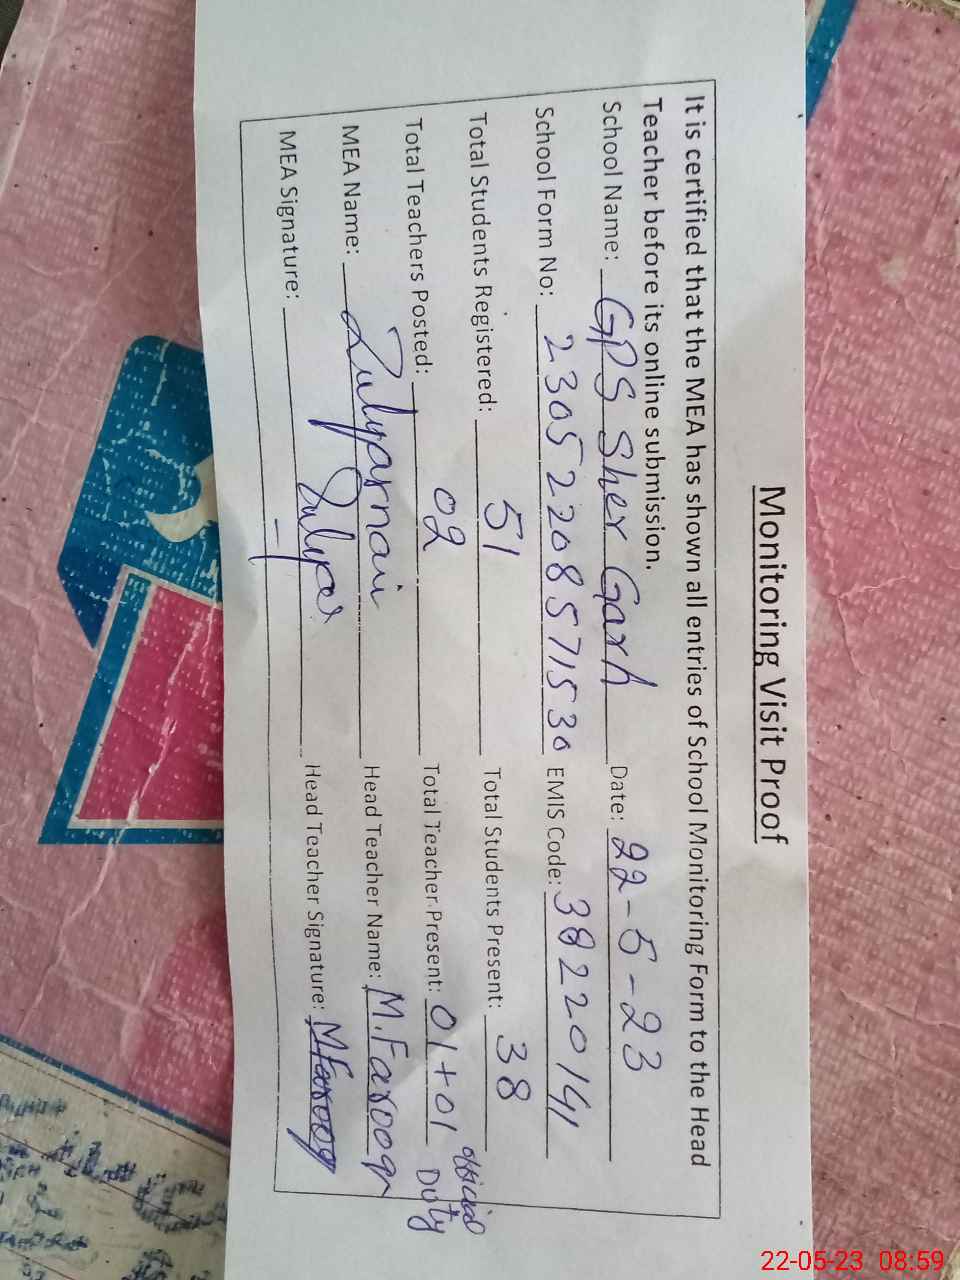 Monitoring Visit Proof
It is certified that the MEA has shown all entries of School Monitoring Form to the Head
Teacher before its online submission.
School Name: GPS Sher Garh Date: 22-5-23
School Form No: 2305220857153 0 EMIS Code: 38220141
Total Students Registered: 51 Total Students Present: 38
Total Teachers Posted: 02 Total Teacher Present: 01+01 official Duty
MEA Name: Head Teacher Name: M.Farooq
MEA Signature: Head Teacher Signature: MFarooq
22-05-23 08:59